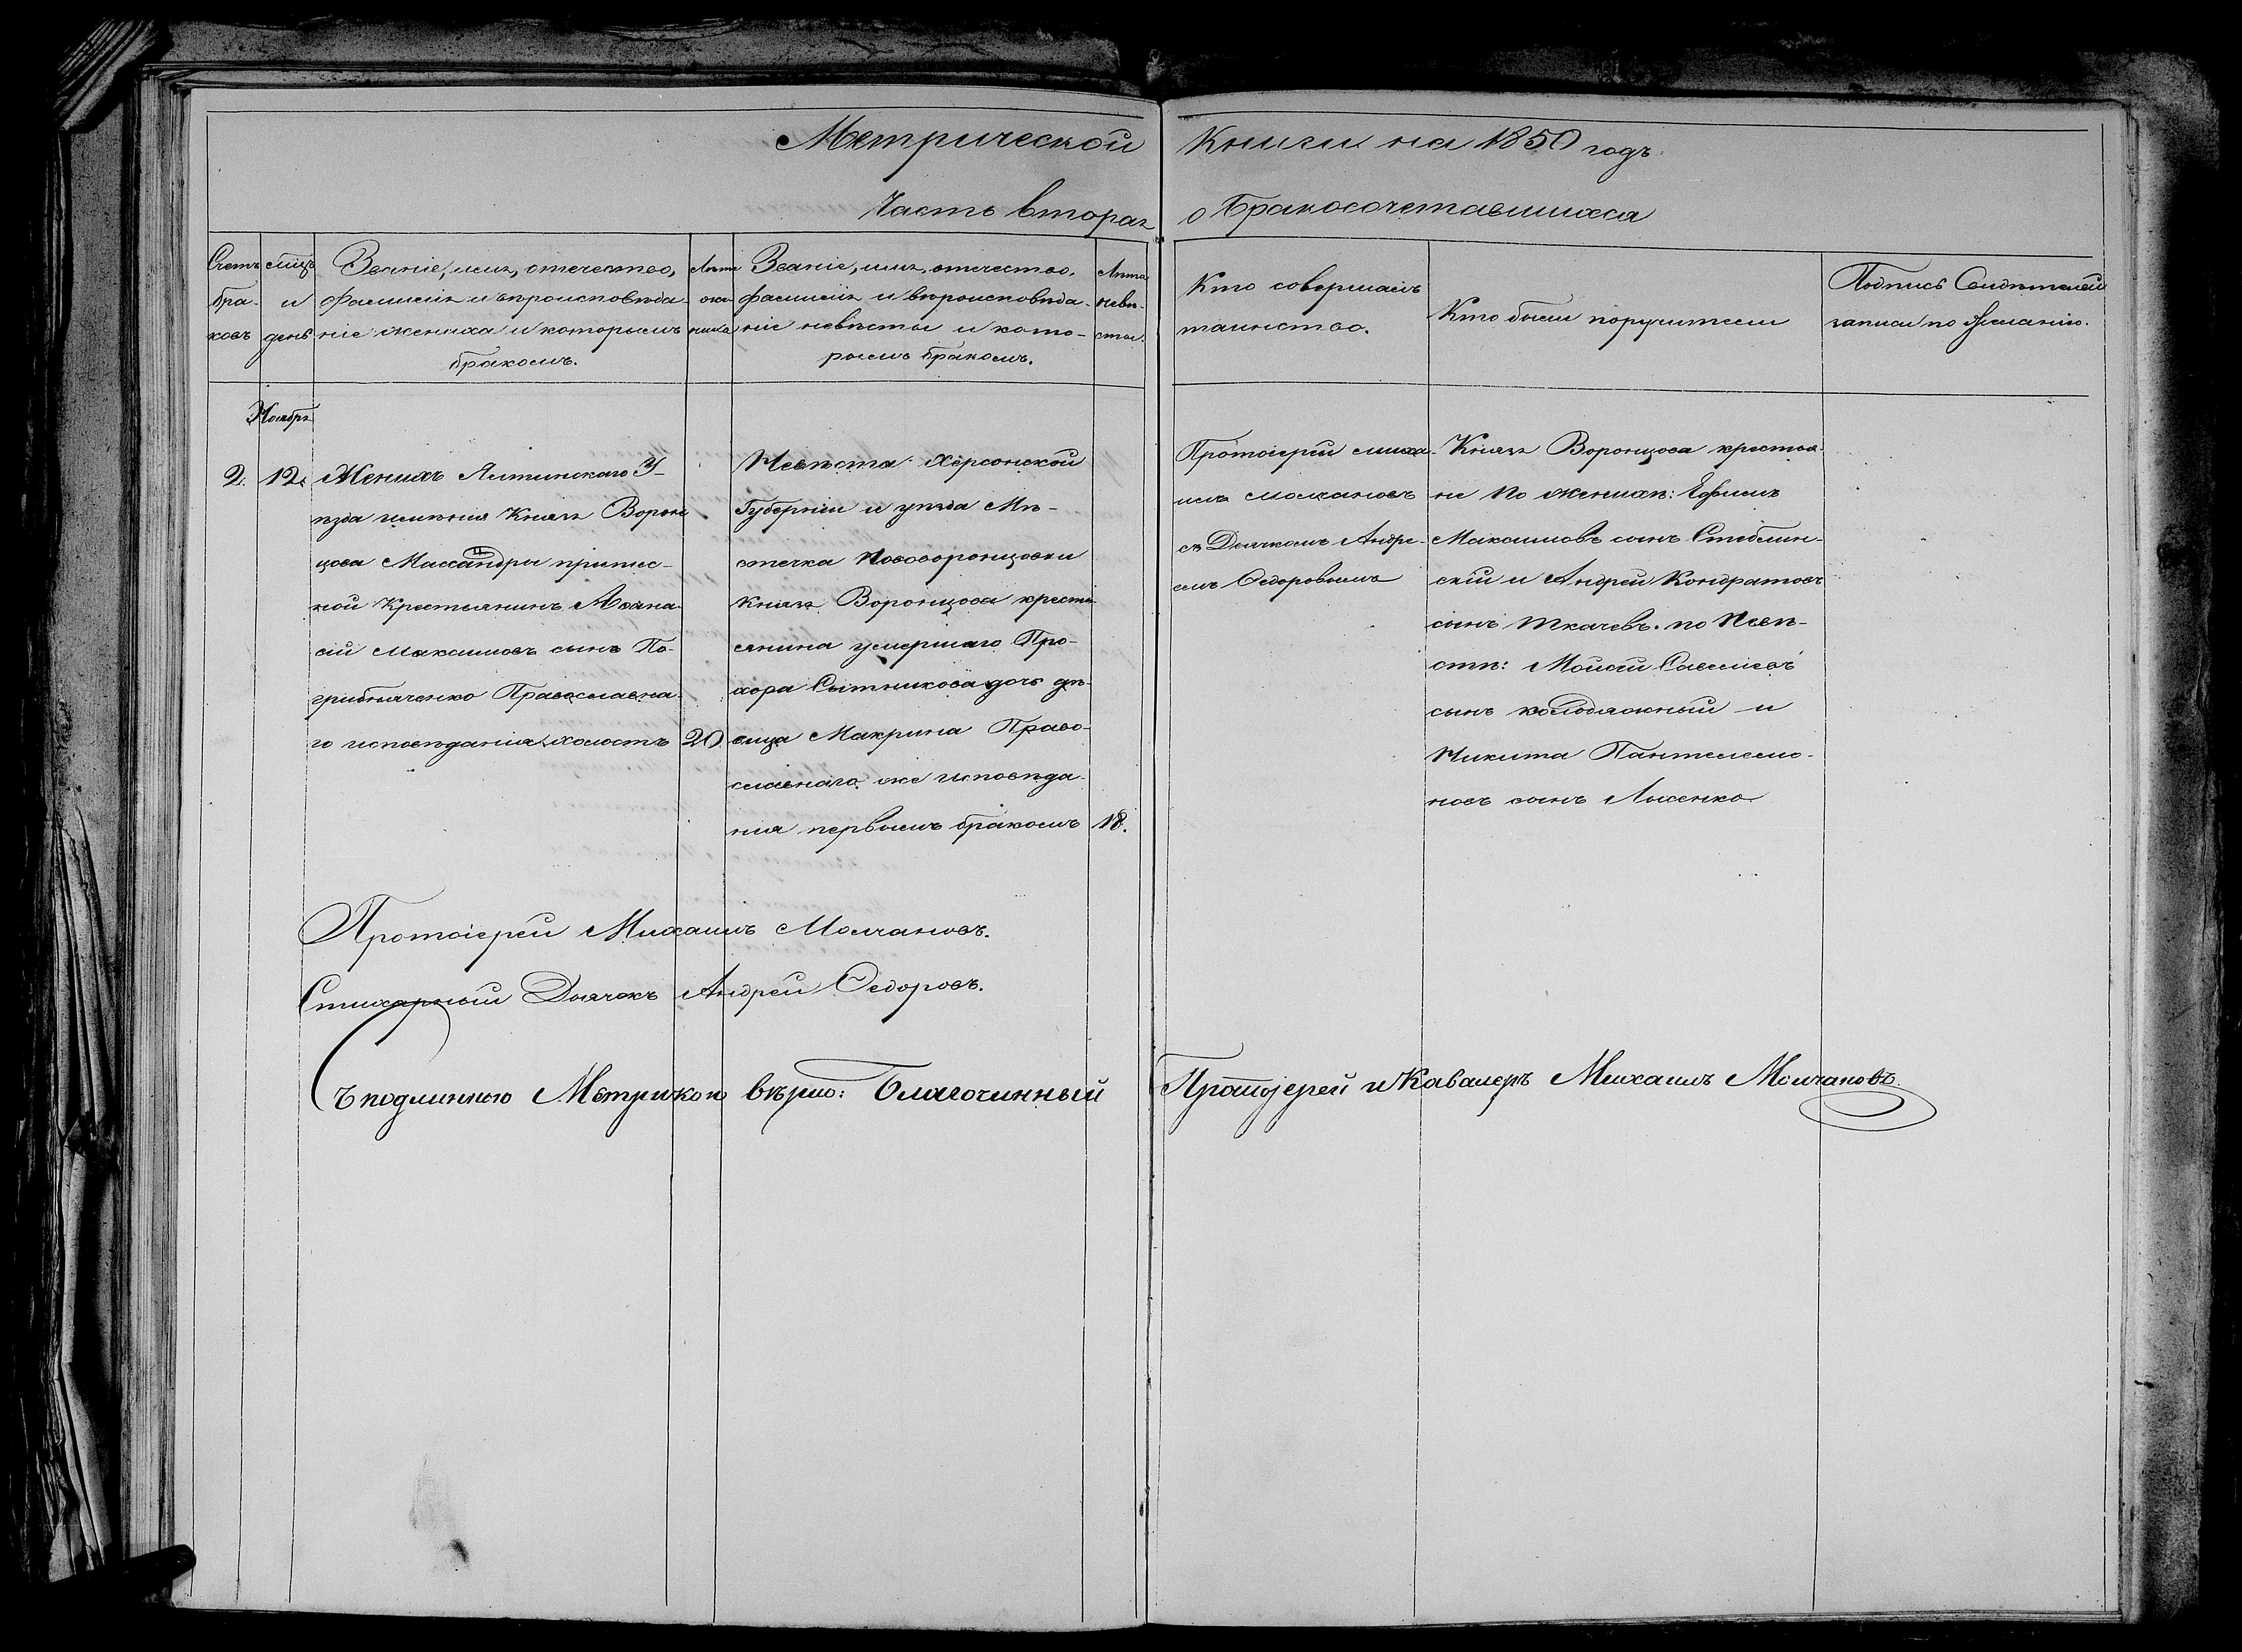 Метрической Книги на 1850 годъ.
Часть вторая о Бракосочетавшихся
Счетъ
бра-
ковъ
мцъ
и
день
Званіе, имя, отечество,
фамилія и вѣроисповѣда-
ніе жениха и которымъ
бракомъ.
Лѣта
же-
ниха
Званіе, имя, отечество,
фамилія и вѣроисповѣда-
ніе невѣсты и кото-
рымъ бракомъ.
Лѣта
невѣ-
сты.
Кто совершалъ
таинство.
Кто были поручители
Подпись Свидѣтелей
записи по Желанію.
Ноябрь
2. 12.
Женихъ Ялтинскаго У-
ѣзда имѣнія Князя Ворон
цова Массандры припис-
ной Крестьянинъ Афана-
сій Максимовъ сынъ По-
грибняченко Православна-
го исповѣданія, холостъ
20
Невѣста Херсонской
Губерніи и уѣзда Мѣ-
стечка Нововоронцовки
Князя Воронцова кресть-
янина умершаго Про-
хора Сытникова дочь дѣ-
вица Макрина Право-
славнаго же исповѣда-
нія первымъ бракомъ
18.
Протоіерей Миха-
илъ Молчановъ
съ Дьячкомъ Андре-
емъ Ѳедоровымъ
Князя Воронцова крестья-
не По женихѣ: Ефимъ
Максимовъ сынъ Стеблин-
скій и Андрей Кондратовъ
сынъ Ткачевъ. по Невѣ-
стѣ: Моисей Савеліевъ
сынъ колодяжный и
Никита Пантелемо-
новъ сынъ Лысенко
Протоіерей Михаилъ Молчановъ.
Стихарный Дьячекъ Андрей Ѳедоровъ.
Съ подлинною Метрикою вѣрно: Благочинный Протоіерей и Кавалеръ Михаилъ Молчановъ.